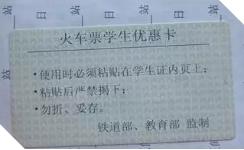 火车票学生优惠卡
•使用时必须粘贴在学生证内页上；
•粘贴后严禁揭下；
•勿折、妥存。
铁道部、教育部 监制